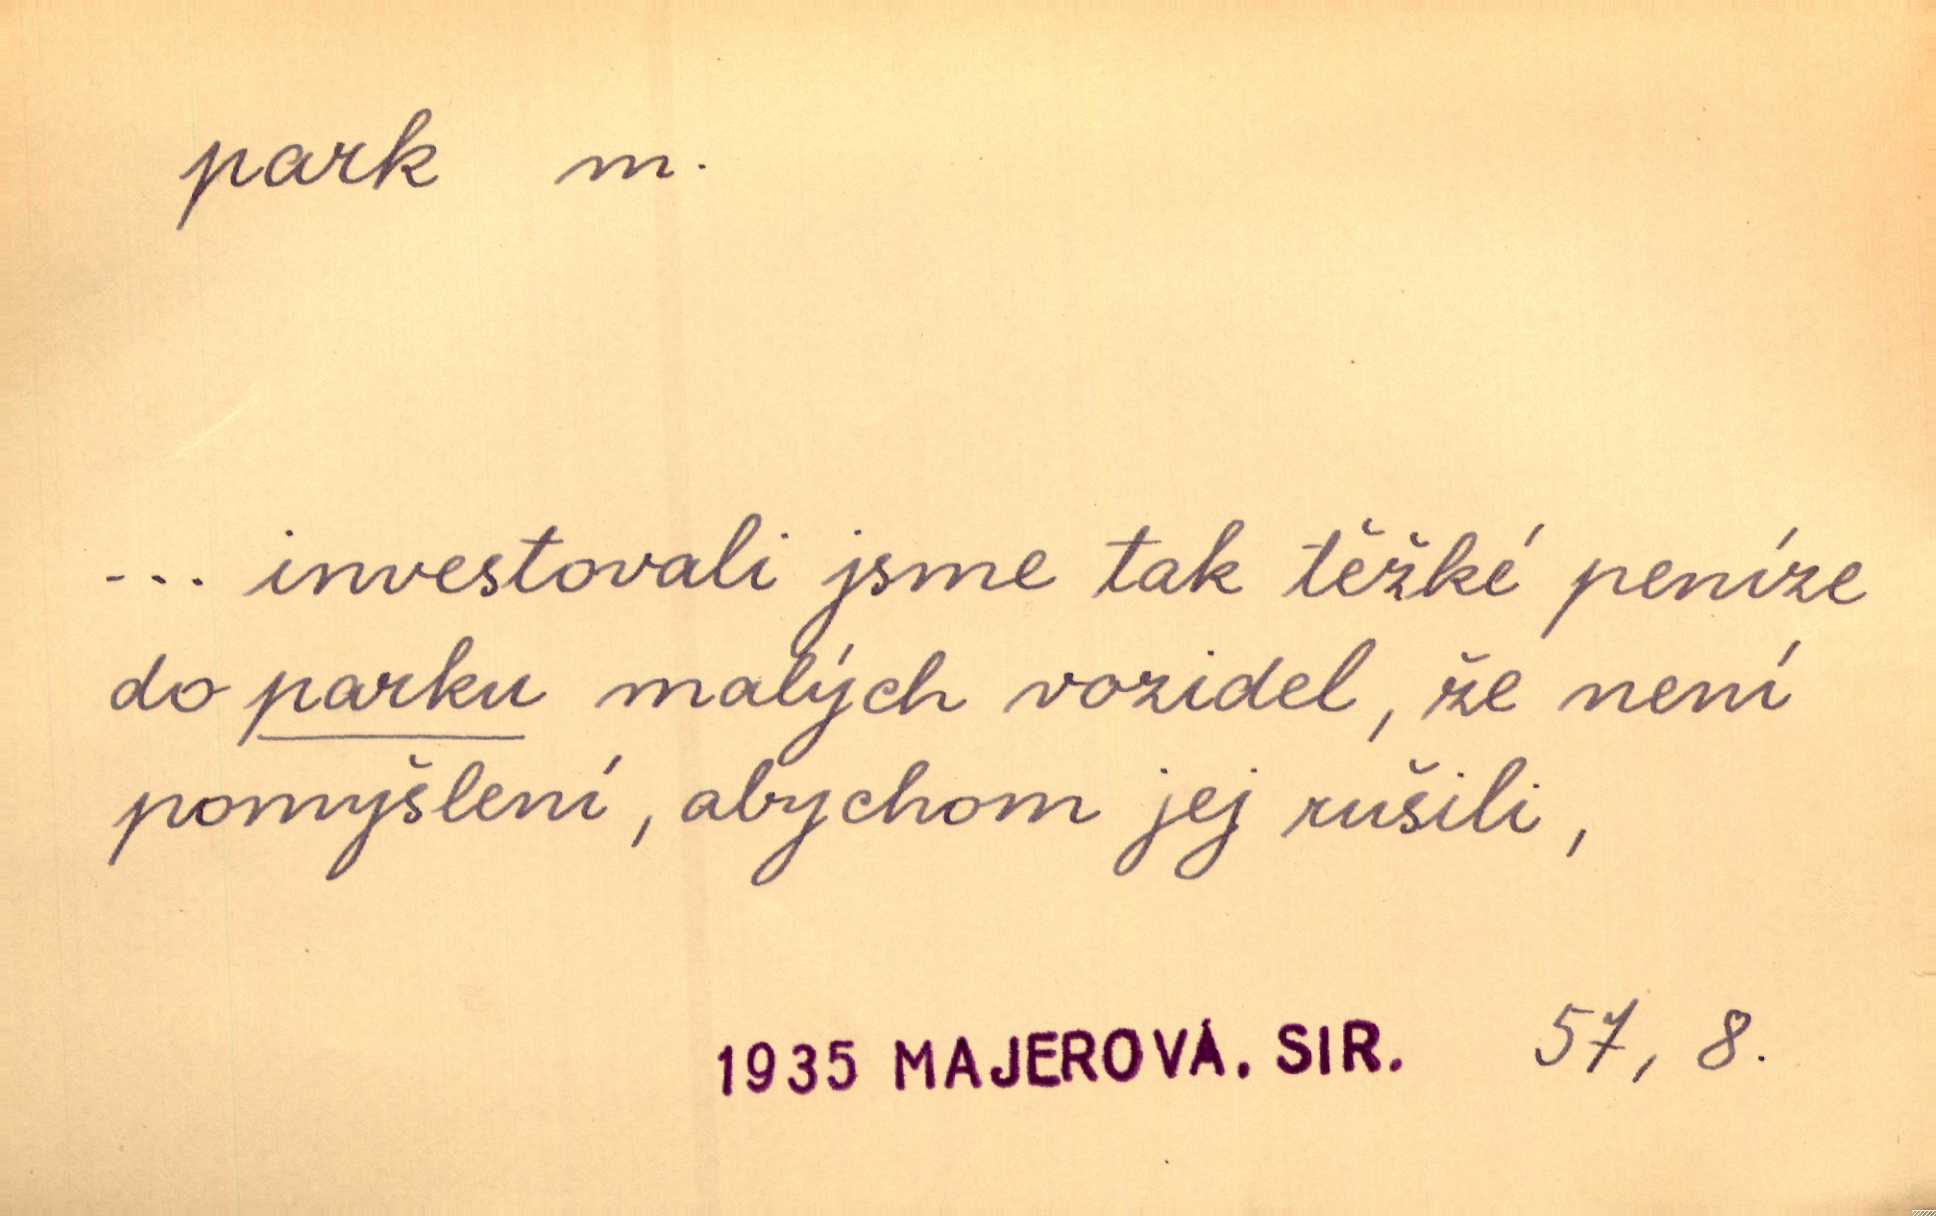 park m.
... investovali jsme tak těžké peníze
do parku malých vozidel, že není
pomyšlení, abychom jej rušili,
1935 MAJEROVÁ. SIR. 57, 8.